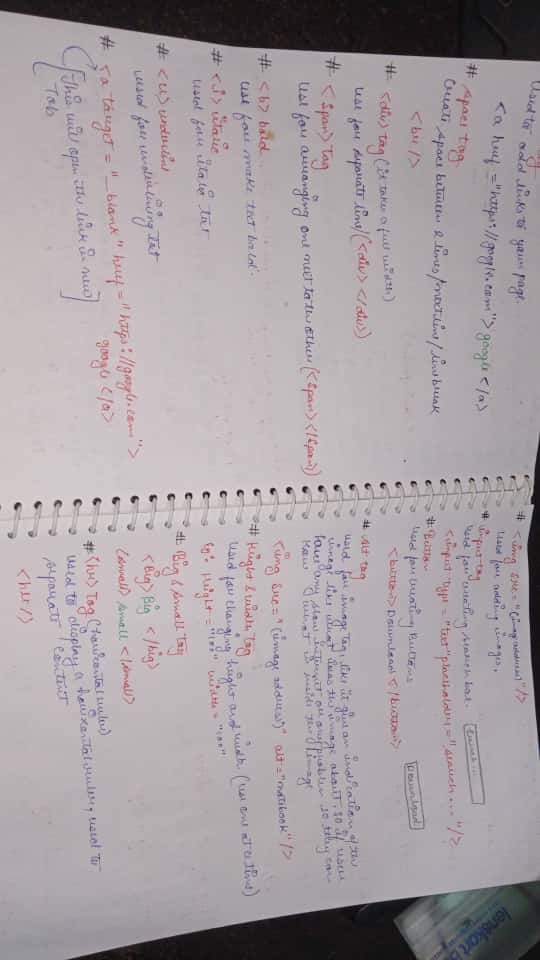 Used to add links to your page.
<a href="https://google.com"> google </a>
# space tag
Create space between 2 lines/nextline/linebreak
<br/>
# <div> tag (it takes a full width)
use for separate line/(<div></div>)
# <span> Tag
Use for arranging one next to the other (<span></span>)
# <b> bold
use for make text bold.
# <i> italic
used for italic txt
# <u> underline
used for underlining txt
# <a target="_blank" href="https://google.com">
google </a>
[This will open the link in new
Tab]
# <img src="(img address)"/>
Used for adding images.
# input tag
used for creating search bar.
<input type="text" placeholder="search..."/>
Search...
# Button
used for creating Buttons
<button> Download </button>
Download
# Alt tag
used for image tag, like it give an indication of the
image like what does the image about. so if user
have any slow internet or any problem so they can
know what is inside the image
<img src="(image address)" alt="notebook"/>
# Hight & width tag
used for changing hight and width (use one at a time)
Eg:- Hight = "100" width = "100"
# Big & small tag
<Big> Big </big>
<small> small </small>
# <hr> Tag (horizontal ruler)
used to display a horizontal ruler, used to
separate content
<hr/>
lenskart